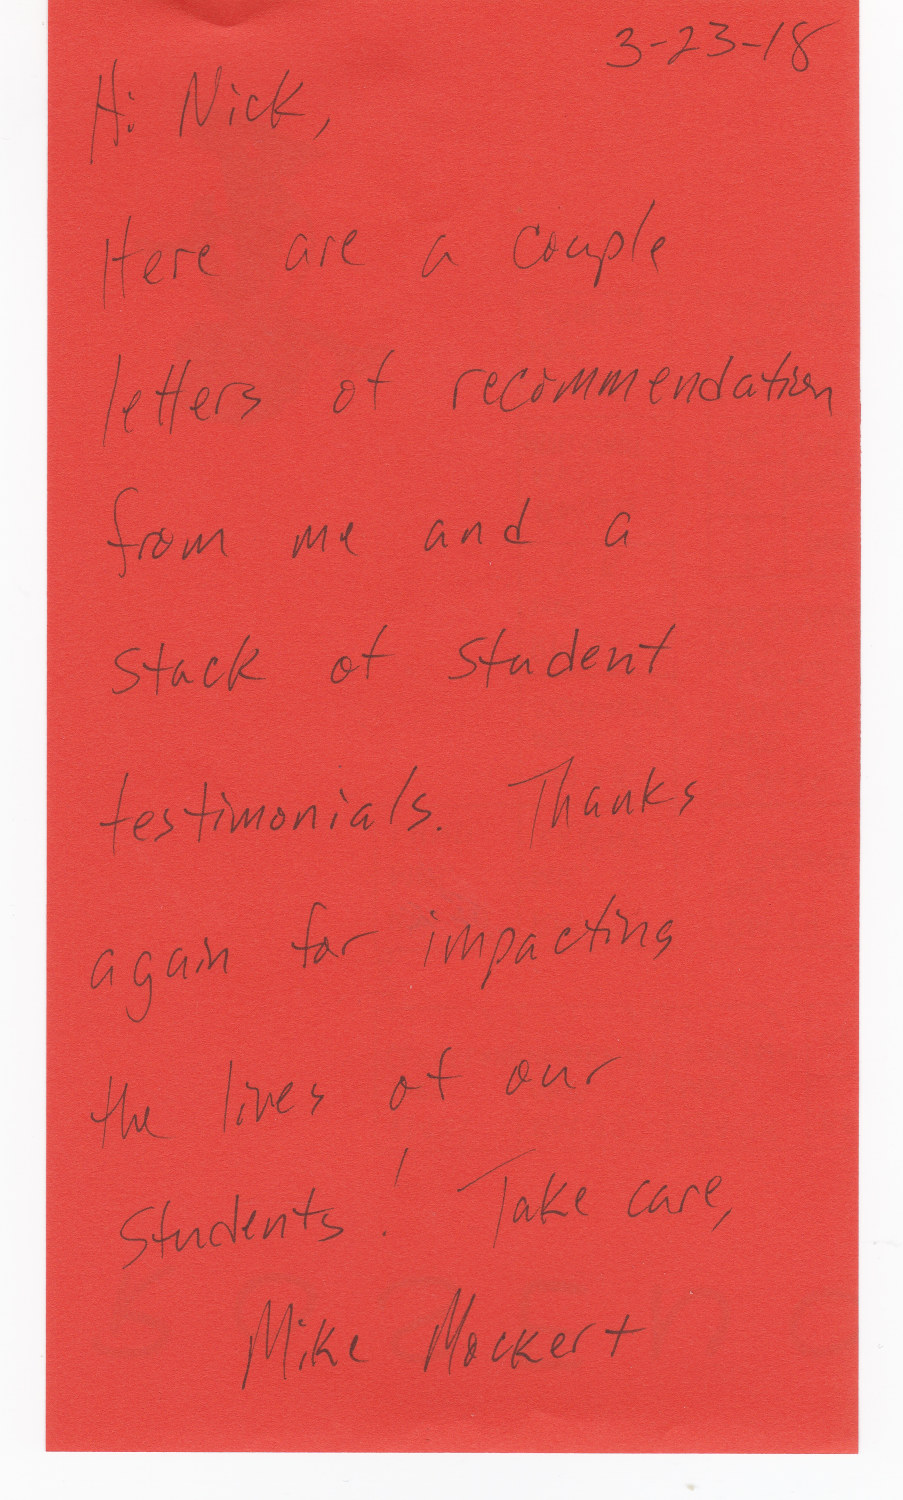 3-23-18
Hi Nick,
Here are a couple
letters of recommendation
from me and a
stack of student
testimonials. Thanks
again for impacting
the lives of our
students! Take care,
Mike Mockert